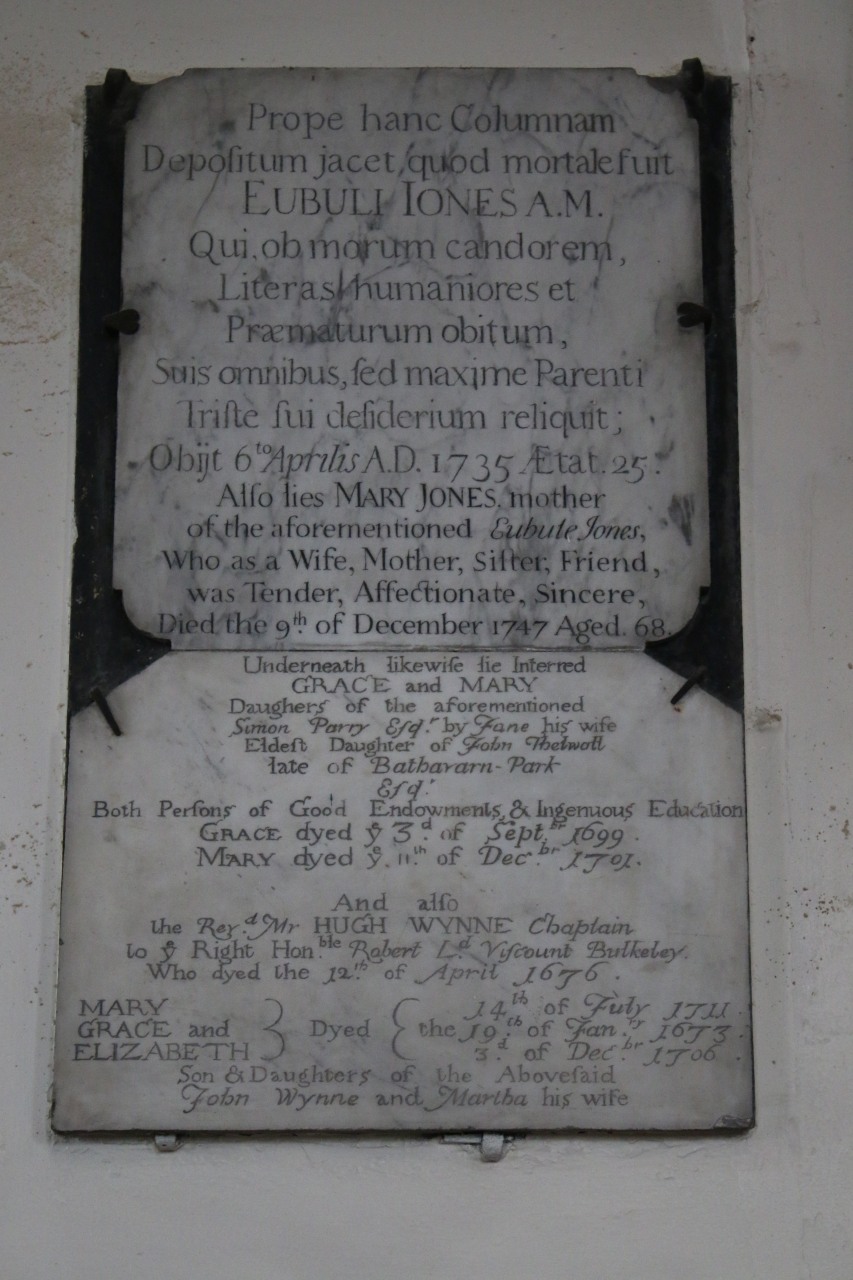 Prope hanc Columnam
Depoſitum jacet, quod mortale fuit
EUBULI IONES A.M.
Qui, ob morum candorem,
Literas humaniores et
Præmaturum obitum,
Suis omnibus, ſed maxime Parenti
Triſte ſui deſiderium reliquit;
Obijt 6to Aprilis A.D. 1735 Ætat. 25.
Alſo lies MARY JONES, mother
of the aforementioned Eubule Jones,
Who as a Wife, Mother, Siſter, Friend,
was Tender, Affectionate, Sincere,
Died the 9th of December 1747 Aged. 68.
Underneath likewiſe lie Interred
GRACE and MARY
Daughers of the aforementioned
Simon Parry Eſqr by Jane his wife
Eldeſt Daughter of John Thelwall
late of Bathavarn-Park
Eſqr
Both Perſons of Good Endowments, & Ingenuous Education
GRACE dyed ye 3d of Septbr 1699.
MARY dyed ye 11th of Decbr 1701.
And alſo
the Revd Mr HUGH WYNNE Chaplain
to ye Right Honble Robert Ld Viſcount Bulkeley.
Who dyed the 12th of April 1676.
MARY 14th of July 1711.
GRACE and } Dyed { the 19th of Janry 1673.
ELIZABETH 3d of Decbr 1706.
Son & Daughters of the Aboveſaid
John Wynne and Martha his wife